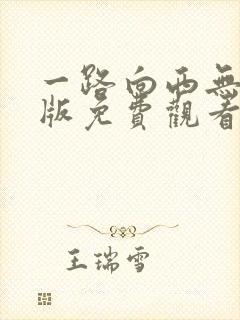 一路向西無
版免費觀看
王瑞雪